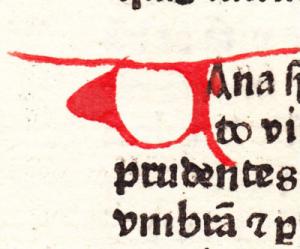 VAna ſp
to vi
prudentes
vmbrā ⁊ p